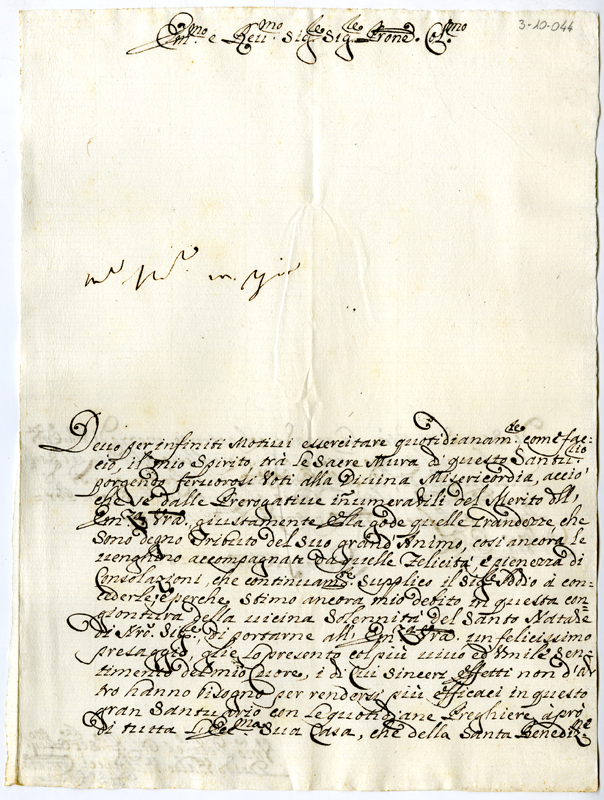 3-10-044
Em.mo e Rev.mo Sig.re Sig.re Prone. Col.mo
Devo per infiniti Motivi essercitare quotidianam.te come fac-
cio, il mio Spirito, trà le Sacre Mura di questo Santu.rio
porgendo fervorosi Voti alla Divina Misericordia, acciò
che se dalle Prerogative inumerabili del Merito dell'
Em.za Vra. giustamente Ella gode quelle Grandezze, che
sono degno Tributo del suo grand'Animo, così ancora le
venghino accompagnate da quelle Felicità, e pienezza di
Consolazioni, che continuam.te supplico il Sig.re Iddio à con-
cederle; e perche stimo ancora mio debito in questa con-
giontura della vicina Solennità del Santo Natale
di Nro. Sig.re di portarne all' Em.za Vra. un felicissimo
presaggio, glie lo presento col più vivo ed Umile Sen-
timento del mio Cuore, i di cui sinceri effetti non d'al-
tro hanno bisogno per rendersi più efficaci in questo
gran Santuario con le quotidiane Preghiere à prò
di tutta l'Ecc.ma Sua Casa, che della Santa Benediz.ne